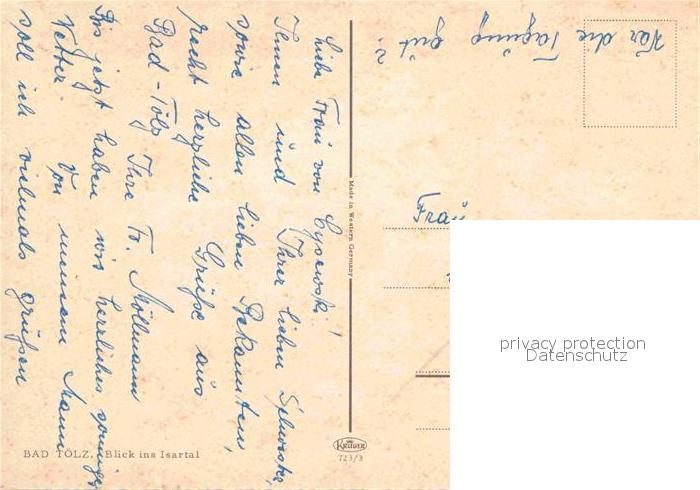 Liebe Frau von Cysewski!
Ihnen und Ihrer lieben Schwester,
sowie allen lieben Bekannten,
recht herzliche Grüße aus
Bad-Tölz Ihre Fr. Möllmann
Bis jetzt haben wir herrliches sonniges
Wetter. Von meinem Mann
soll ich vielmals grüßen
War die Tagung gut?
Frau
Made in Western Germany
Krüger
723/3
BAD TÖLZ, Blick ins Isartal
privacy protection
Datenschutz